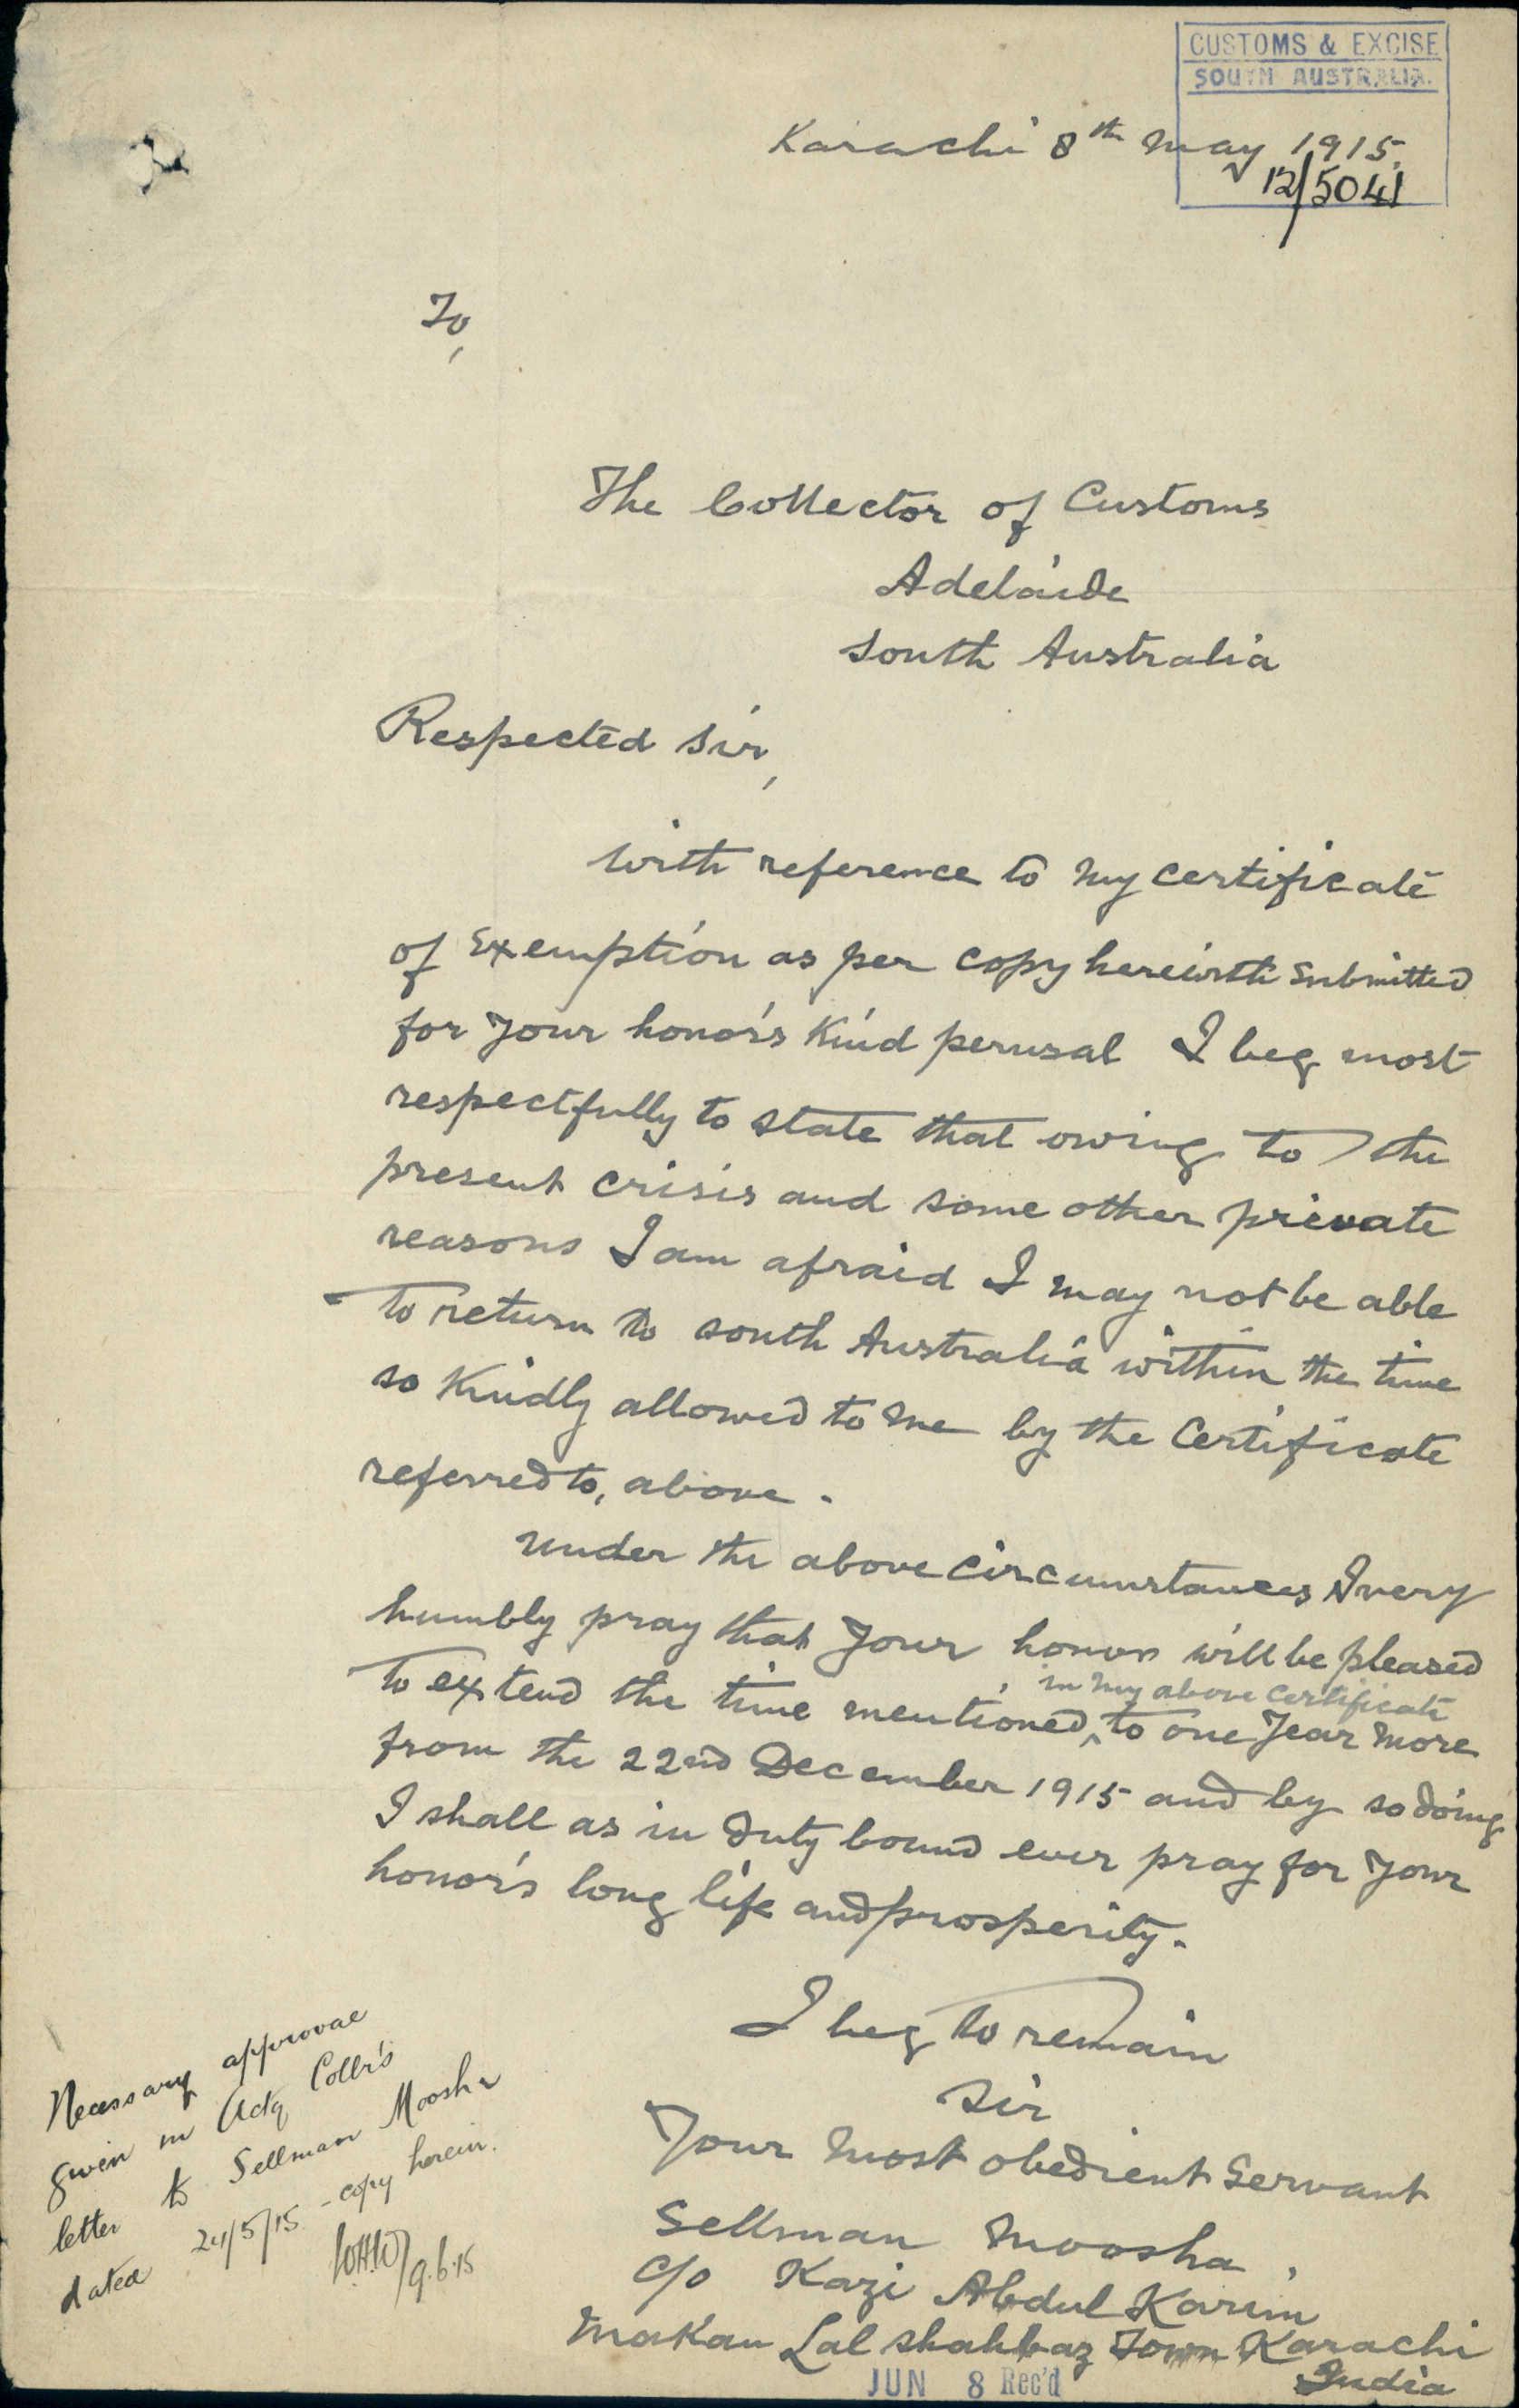 CUSTOMS & EXCISE
SOUTH AUSTRALIA.
Karachi 8th May 1915.
12/5041
To,
The Collector of Customs
Adelaide
South Australia
Respected Sir,
With reference to my certificate
of Exemption as per copy herewith submitted
for your honor's kind perusal I beg most
respectfully to state that owing to the
present crisis and some other private
reasons I am afraid I may not be able
to return to south Australia within the time
so kindly allowed to me by the Certificate
referred to, above.
Under the above circumstances I very
humbly pray that your honor will be pleased
in my above certificate
to extend the time mentioned, to one year more
from the 22nd December 1915 and by so doing
I shall as in duty bound ever pray for your
honor's long life and prosperity.
I beg to remain
Sir
Your most obedient Servant
Sellman Moosha.
c/o Kazi Abdul Karim
Makan Lal Shahbaz Town Karachi
India
JUN 8 Rec'd
Necessary approval
given in Actg Collr's
letter to Sellman Moosha
dated 24/5/15 - copy herein.
9.6.15